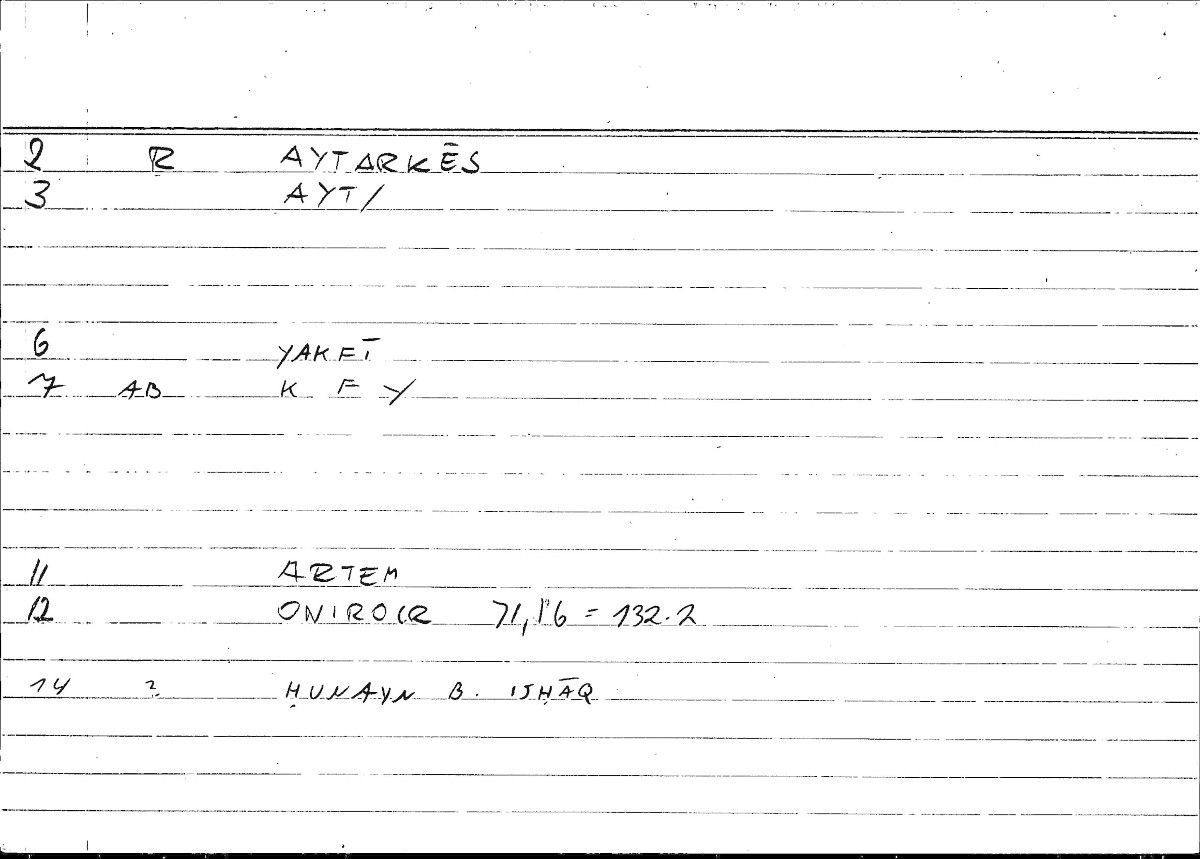 2 R AYTARKĒS
3 AYT/
6 YAKFĪ
7 AB K F Y
11 ARTEM
12 ONIROCR 71,16 = 132.2
14 ? ḤUNAYN B. ISḤĀQ